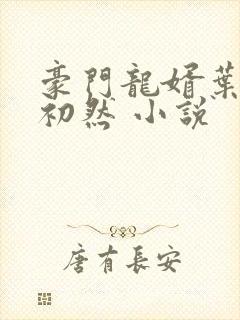 豪門龍婿葉
初然 小說
唐有長安